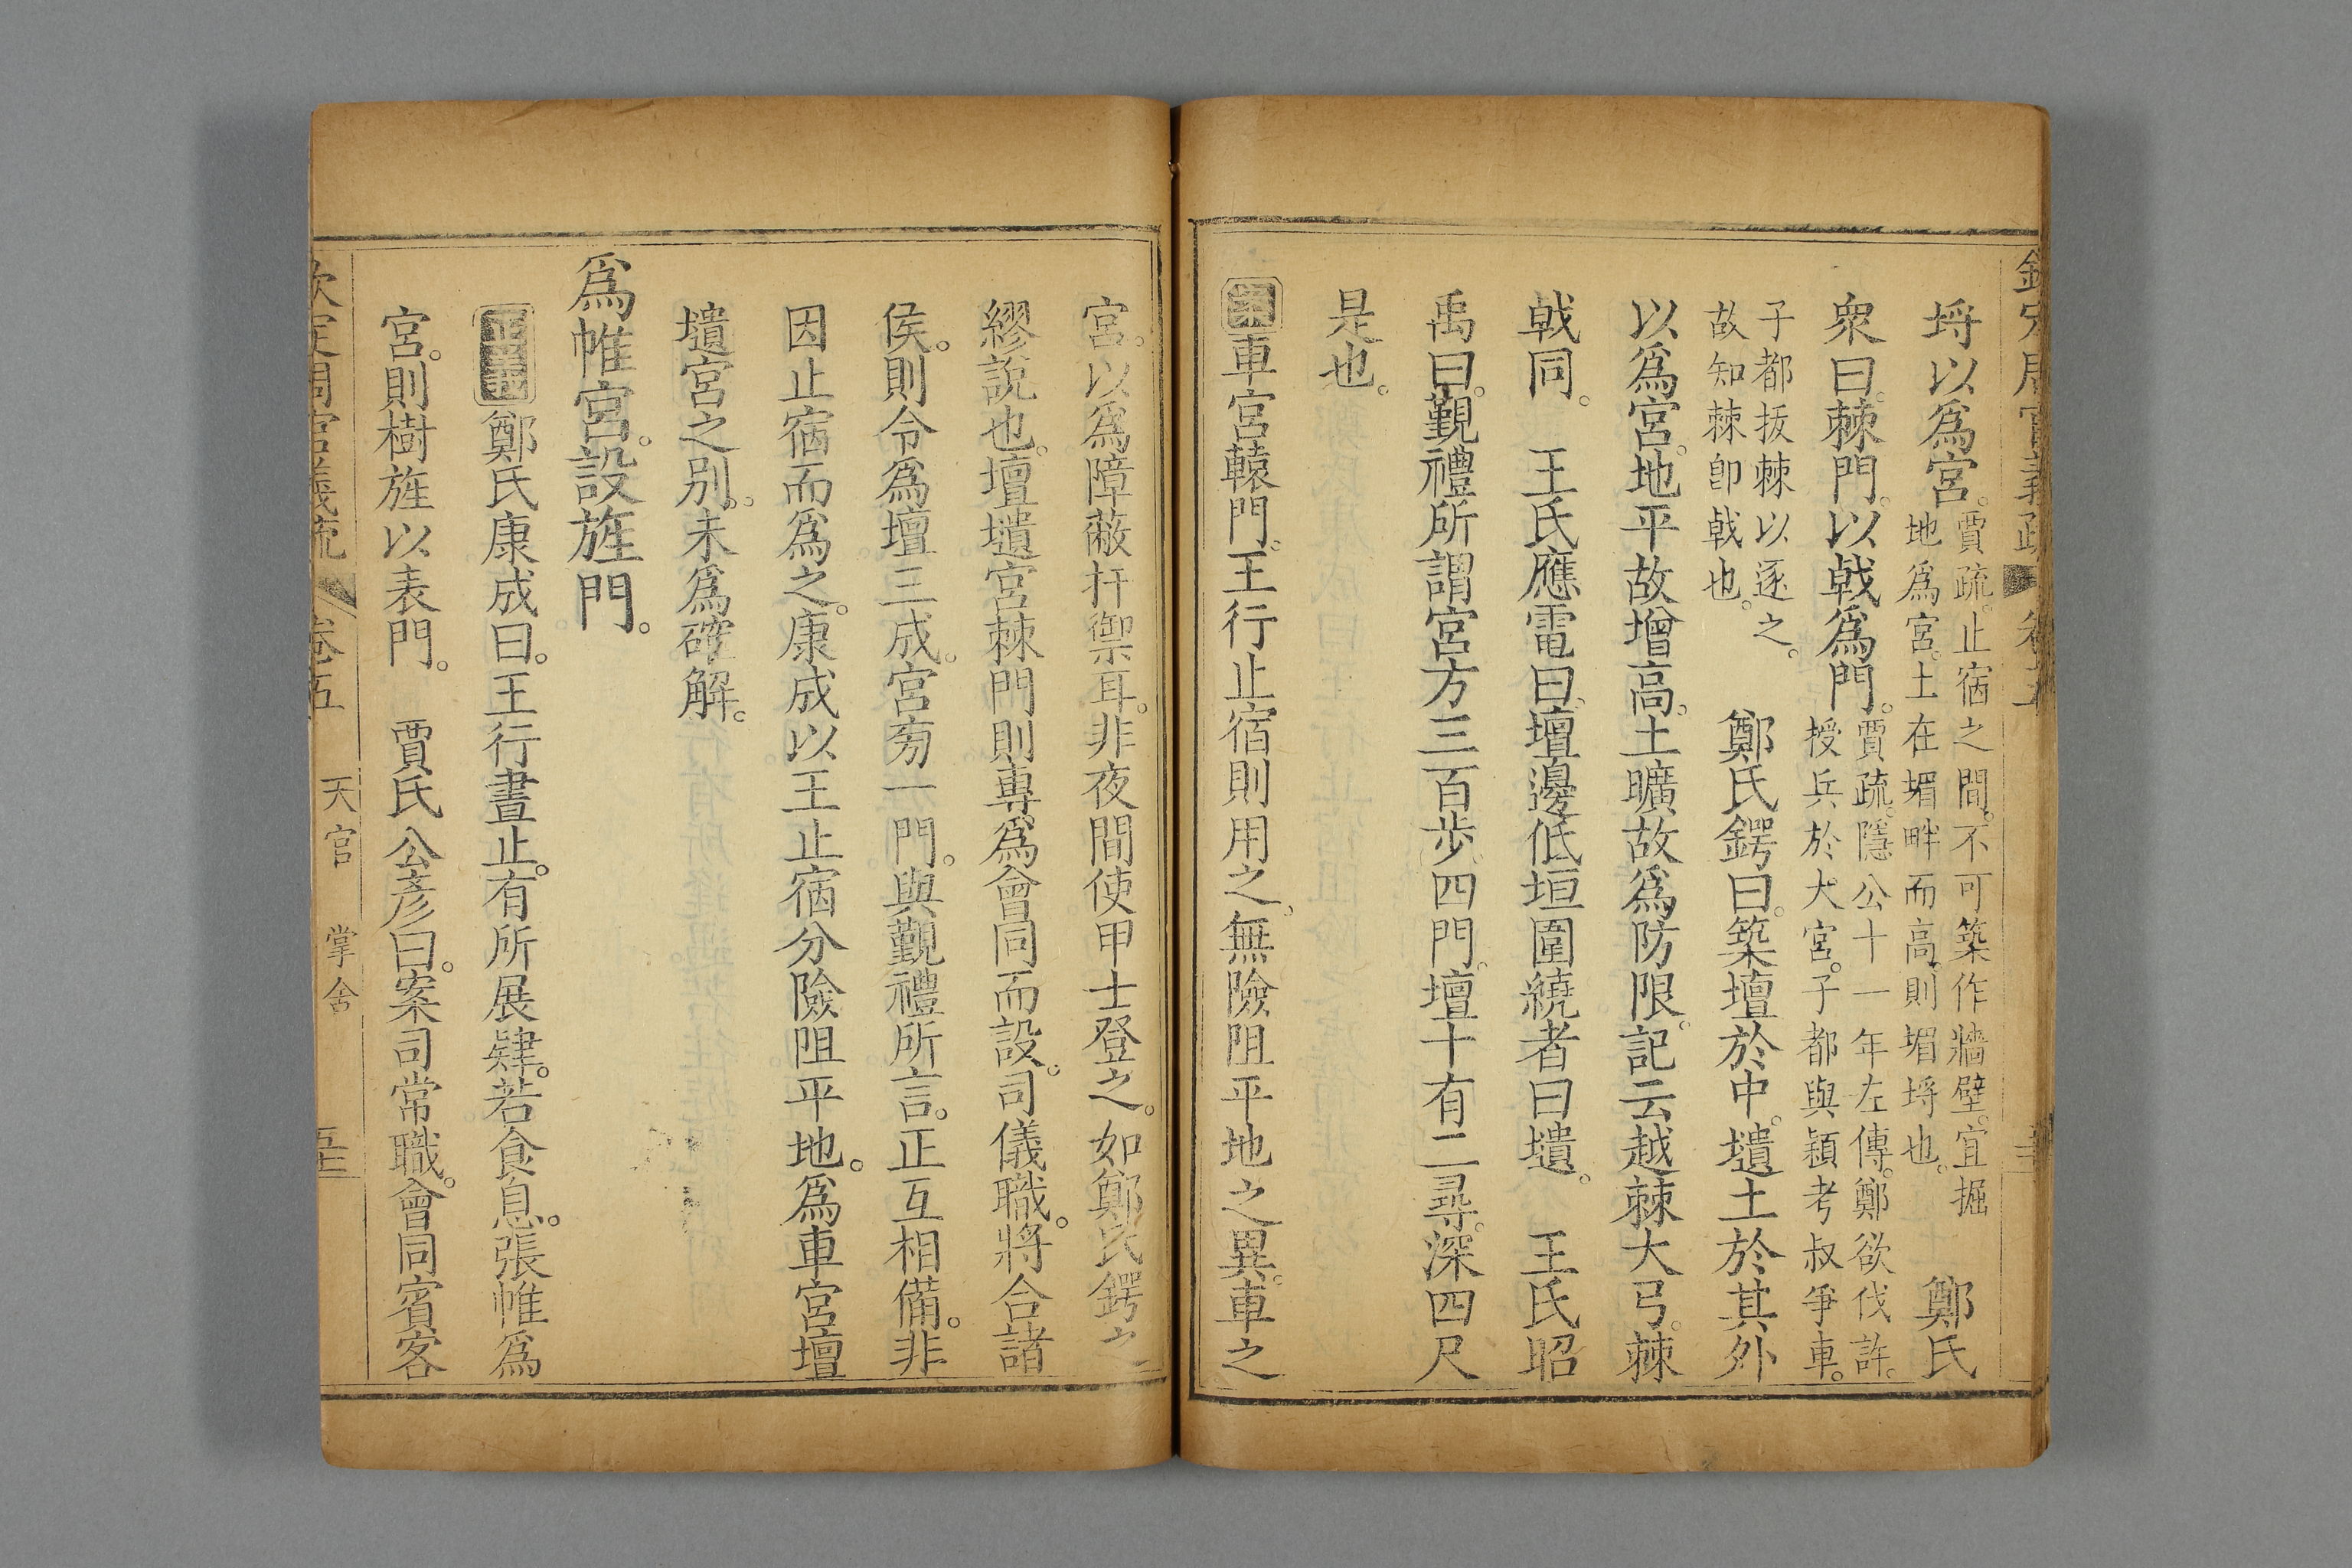 欽定周官義疏 卷五
埓以爲宮。賈疏。止宿之間。不可築作牆壁。宜掘地爲宮。土在堳畔而高。則堳埓也。 鄭氏
衆曰。棘門。以戟爲門。賈疏。隱公十一年左傳。鄭欲伐許。授兵於大宮。子都與潁考叔爭車。
子都拔棘以逐之。故知棘卽戟也。 鄭氏鍔曰。築壇於中。壝土於其外
以爲宮。地平故增高。土曠故爲防限。記云越棘大弓。棘
戟同。 王氏應電曰。壇邊低垣圍繞者曰壝。 王氏昭
禹曰。覲禮所謂宮方三百步。四門。壇十有二尋。深四尺
是也。
案車宮轅門。王行止宿則用之。無險阻平地之異。車之
宮。以爲障蔽扞禦耳。非夜間使甲士登之。如鄭氏鍔之
繆說也。壇壝宮棘門則專爲會同而設。司儀職。將合諸
侯。則令爲壇三成。宮旁一門。與覲禮所言。正互相備。非
因止宿而爲之。康成以王止宿分險阻平地。爲車宮壇
壝宮之別。未爲確解。
爲帷宮。設旌門。
正義鄭氏康成曰。王行晝止。有所展肄。若食息。張帷爲
宮。則樹旌以表門。 賈氏公彥曰。案司常職。會同賓客
欽定周官義疏 卷五 天官 掌舍 五十三